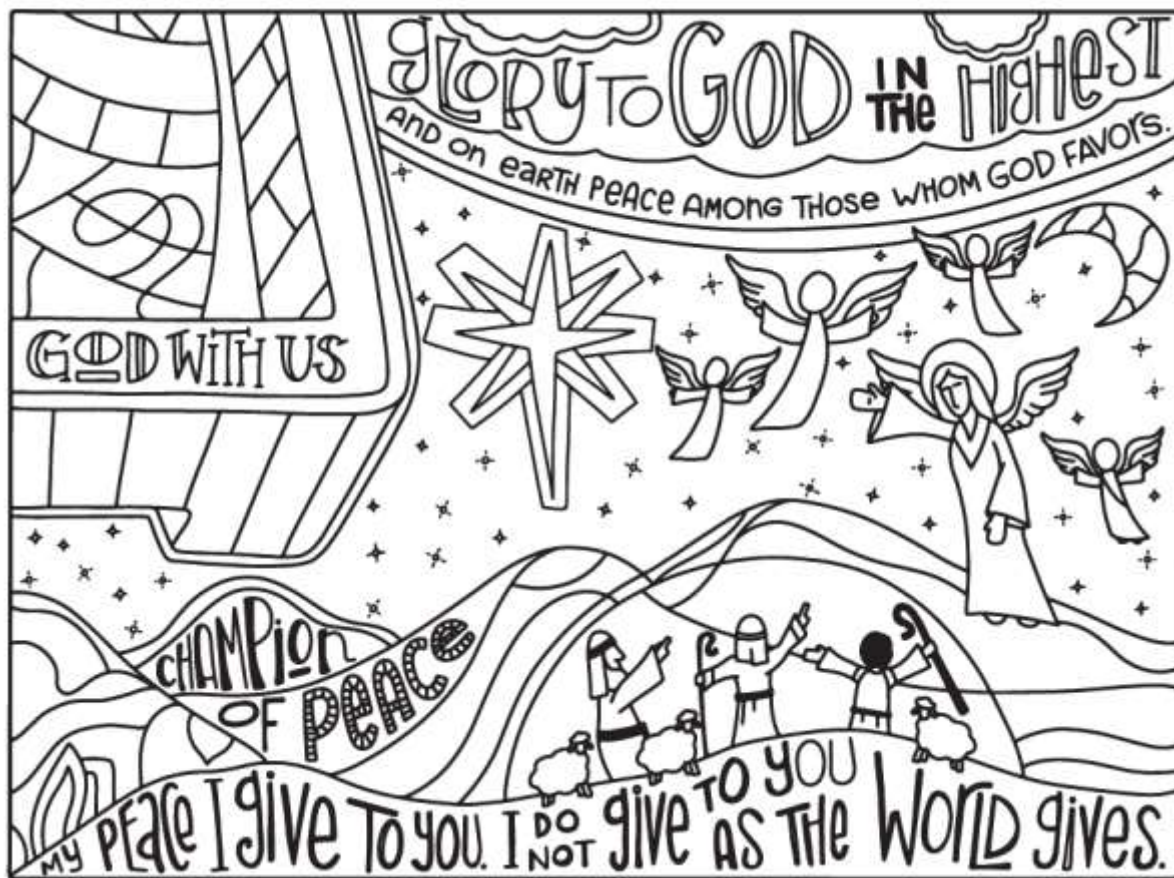 gLORY TO GOD IN THE HIGHEST
AND ON eaRTH PEACe AMONG THOSe WHOM GOD FAVORS.
GOD WITH US
CHAMPiON
OF PEACe
MY PEace I give TO YOU. I DO NOT give TO YOU AS THE WORLD gives.